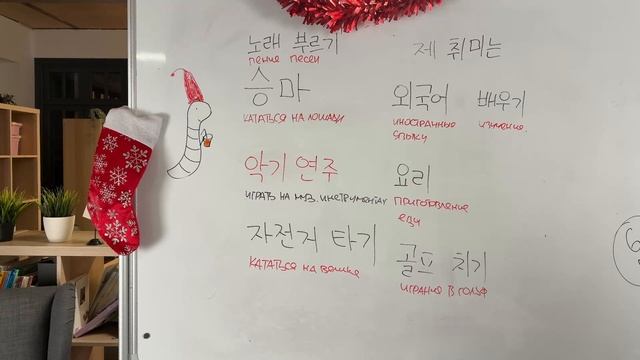 노래 부르기
пение песен
승마
кататься на лошади
악기 연주
играть на муз. инструментах
자전거 타기
кататься на велике
제 취미는
외국어 배우기
иностранные языки изучение
요리
приготовление еды
골프 치기
играние в гольф